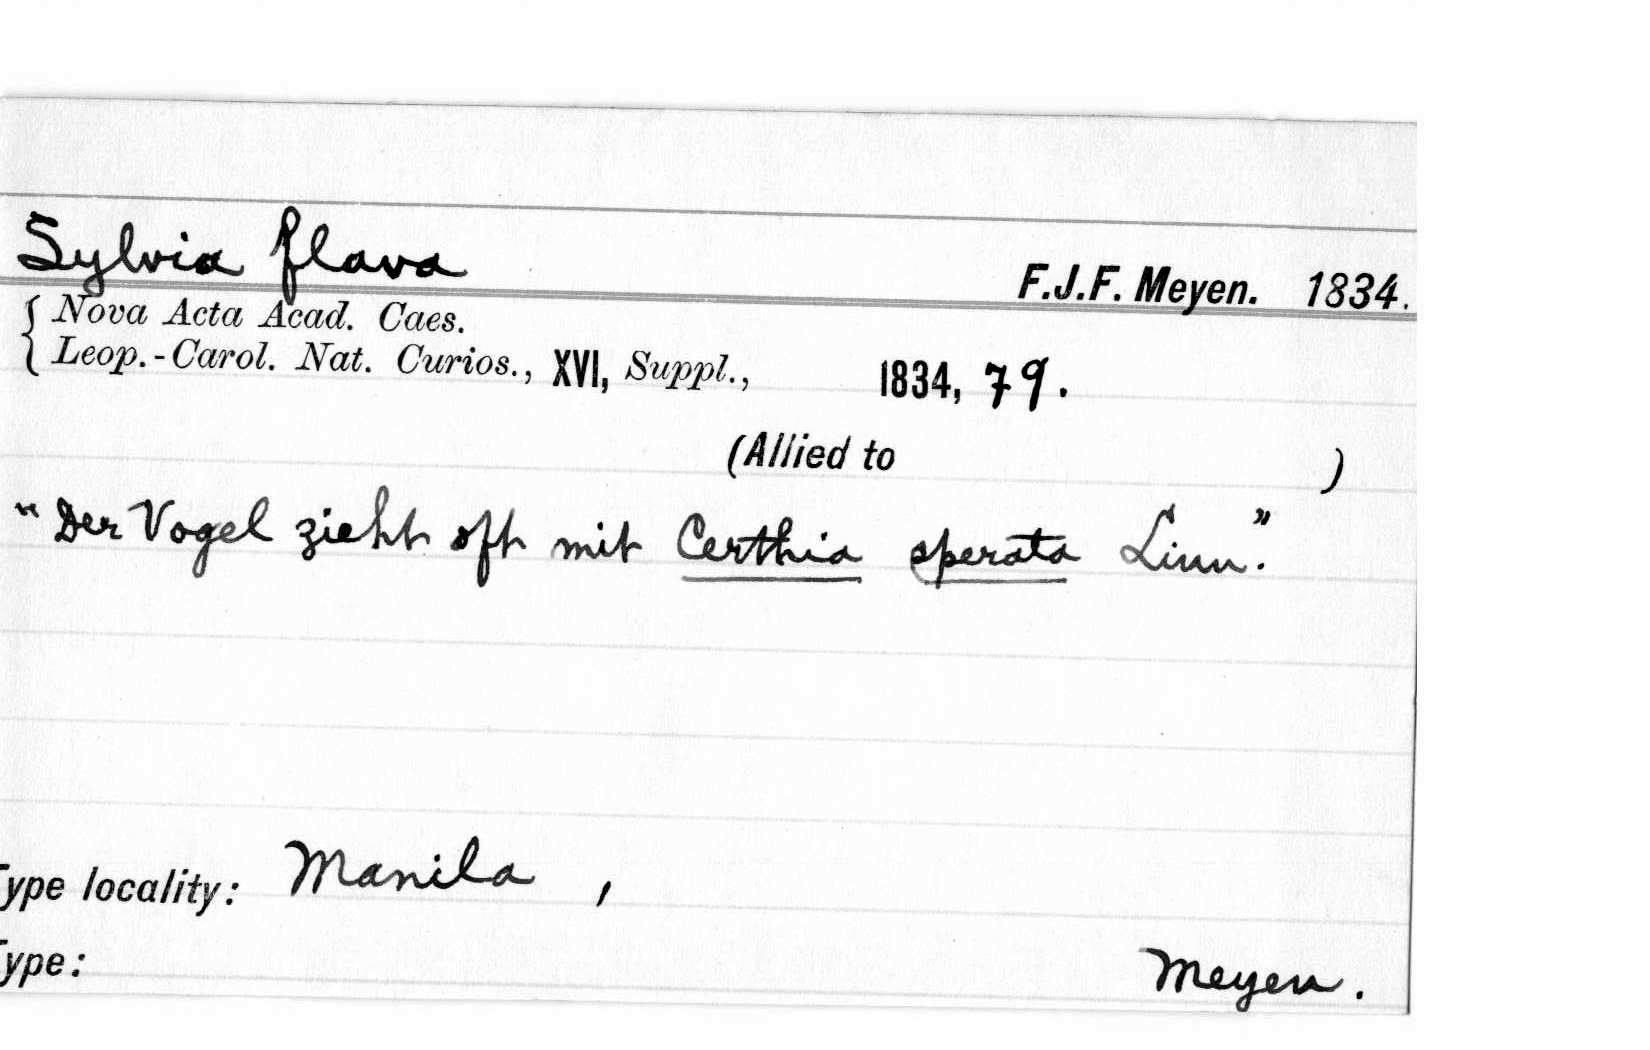 Sylvia flava
F.J.F. Meyen. 1834.
Nova Acta Acad. Caes.
Leop.-Carol. Nat. Curios., XVI, Suppl., 1834, 79.
(Allied to )
"Der Vogel zieht oft mit Certhia sperata Linn."
Type locality: Manila ,
Type: Meyen.